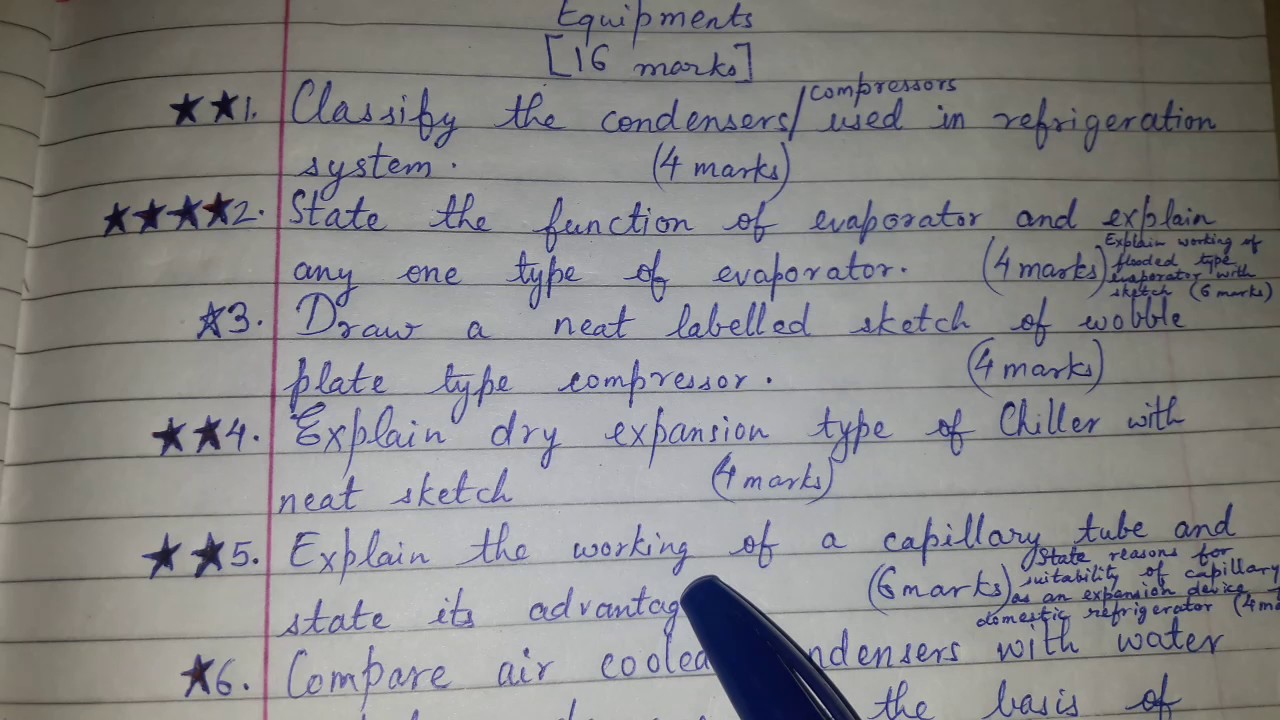 Equipments
[16 marks]
★★1. Classify the condensers/compressors used in refrigeration
system. (4 marks)
★★★★2. State the function of evaporator and explain
any one type of evaporator. (4 marks)
Explain working of
flooded type
evaporator with
sketch (6 marks)
★3. Draw a neat labelled sketch of wobble
plate type compressor. (4 marks)
★★4. Explain dry expansion type of Chiller with
neat sketch (4 marks)
★★5. Explain the working of a capillary tube and
state its advantag (6 marks)
State reasons for
suitability of capillary
as an expansion device
domestic refrigerator (4 ma
★6. Compare air cooled ndensers with water
the basis of